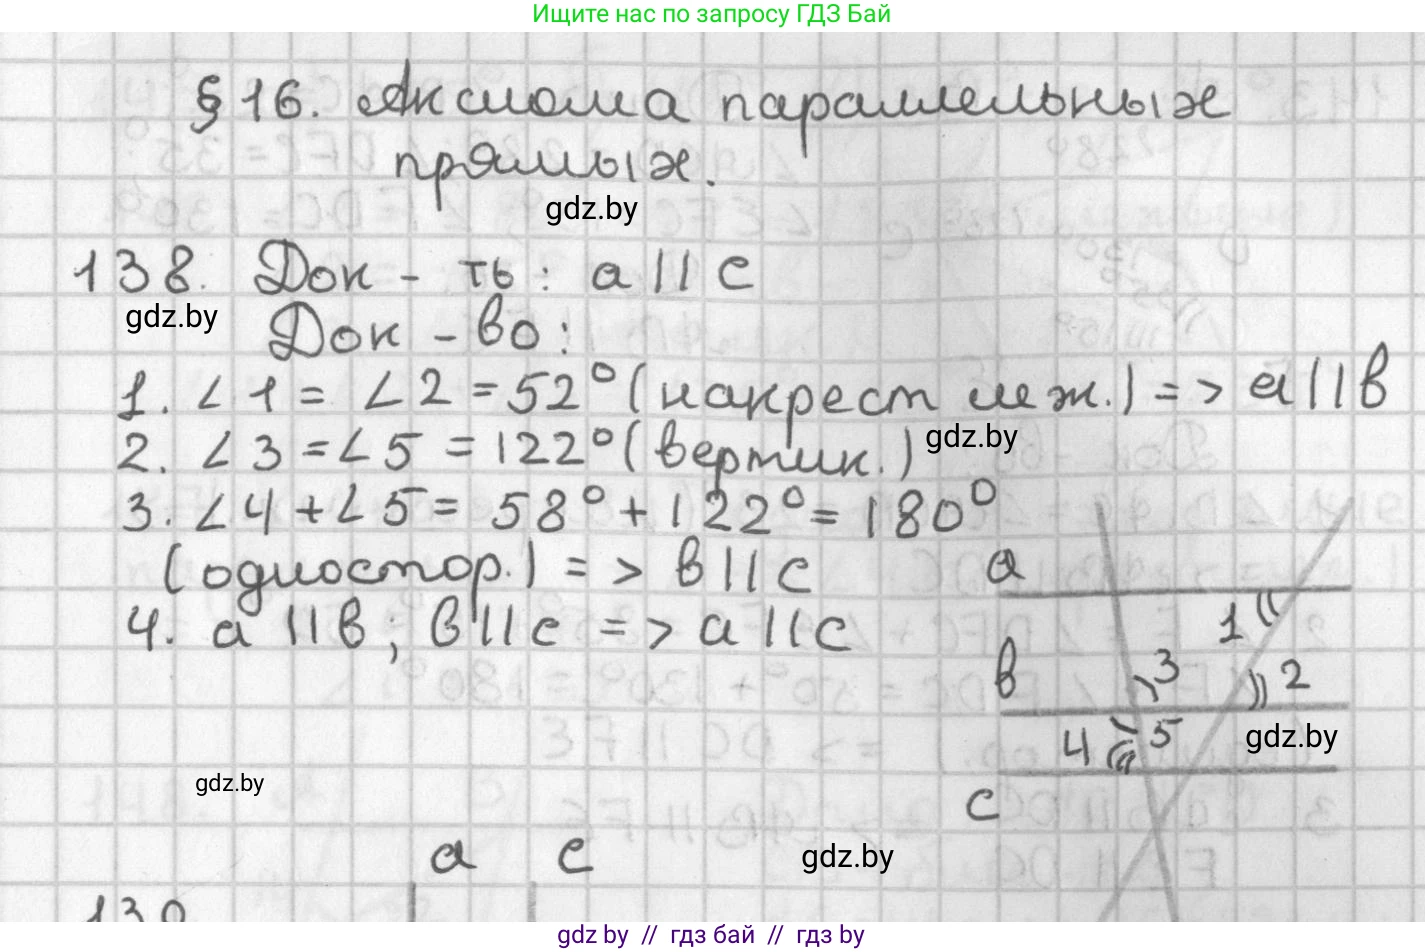 Ищите нас по запросу ГДЗ Бай
§ 16. Аксиома параллельных
прямых.
gdz.by
138. Док - ть: a || c
gdz.by
Док - во:
1. ∠1 = ∠2 = 52° (накрест леж.) => a || b
2. ∠3 = ∠5 = 122° (вертик.)
gdz.by
3. ∠4 + ∠5 = 58° + 122° = 180°
(одностор.) => b || c
4. a || b; b || c => a || c
a
1
b
3
2
4
5
gdz.by
c
gdz.by
a c
gdz.by
139
gdz by // гдз бай // гдз by